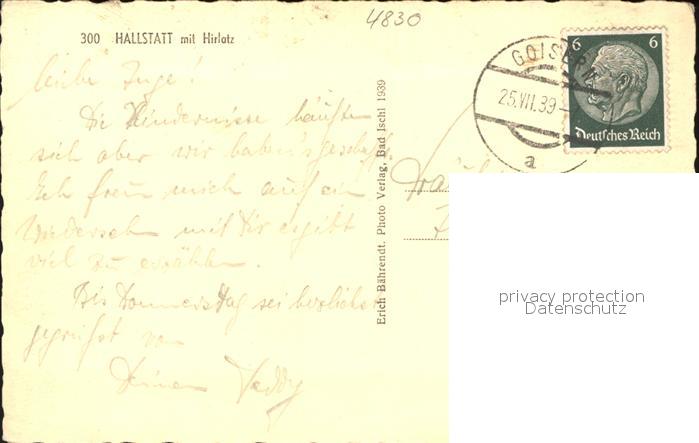 4830
300 HALLSTATT mit Hirlatz
Liebe Inge!
Die Hindernisse häuften
sich aber wir haben's geschafft.
Ich freue mich auf ein
Wiedersehn mit Dir es gibt
viel zu erzählen.
Bis Donnerstag sei herzlichst
gegrüßt von
Deinem Teddy
Erich Bährendt. Photo Verlag, Bad Ischl 1939
GOISERN
25.VII.39
a
6 6
Deutsches Reich
privacy protection
Datenschutz